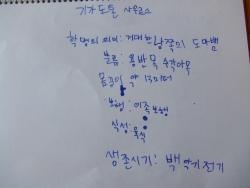 기가노토 사우루스
학명의 의미: 거대한 남쪽의 도마뱀
분류: 용반목 수각아목
몸길이 약 13미터
보행: 이족보행
식성: 육식
생존시기: 백악기 전기